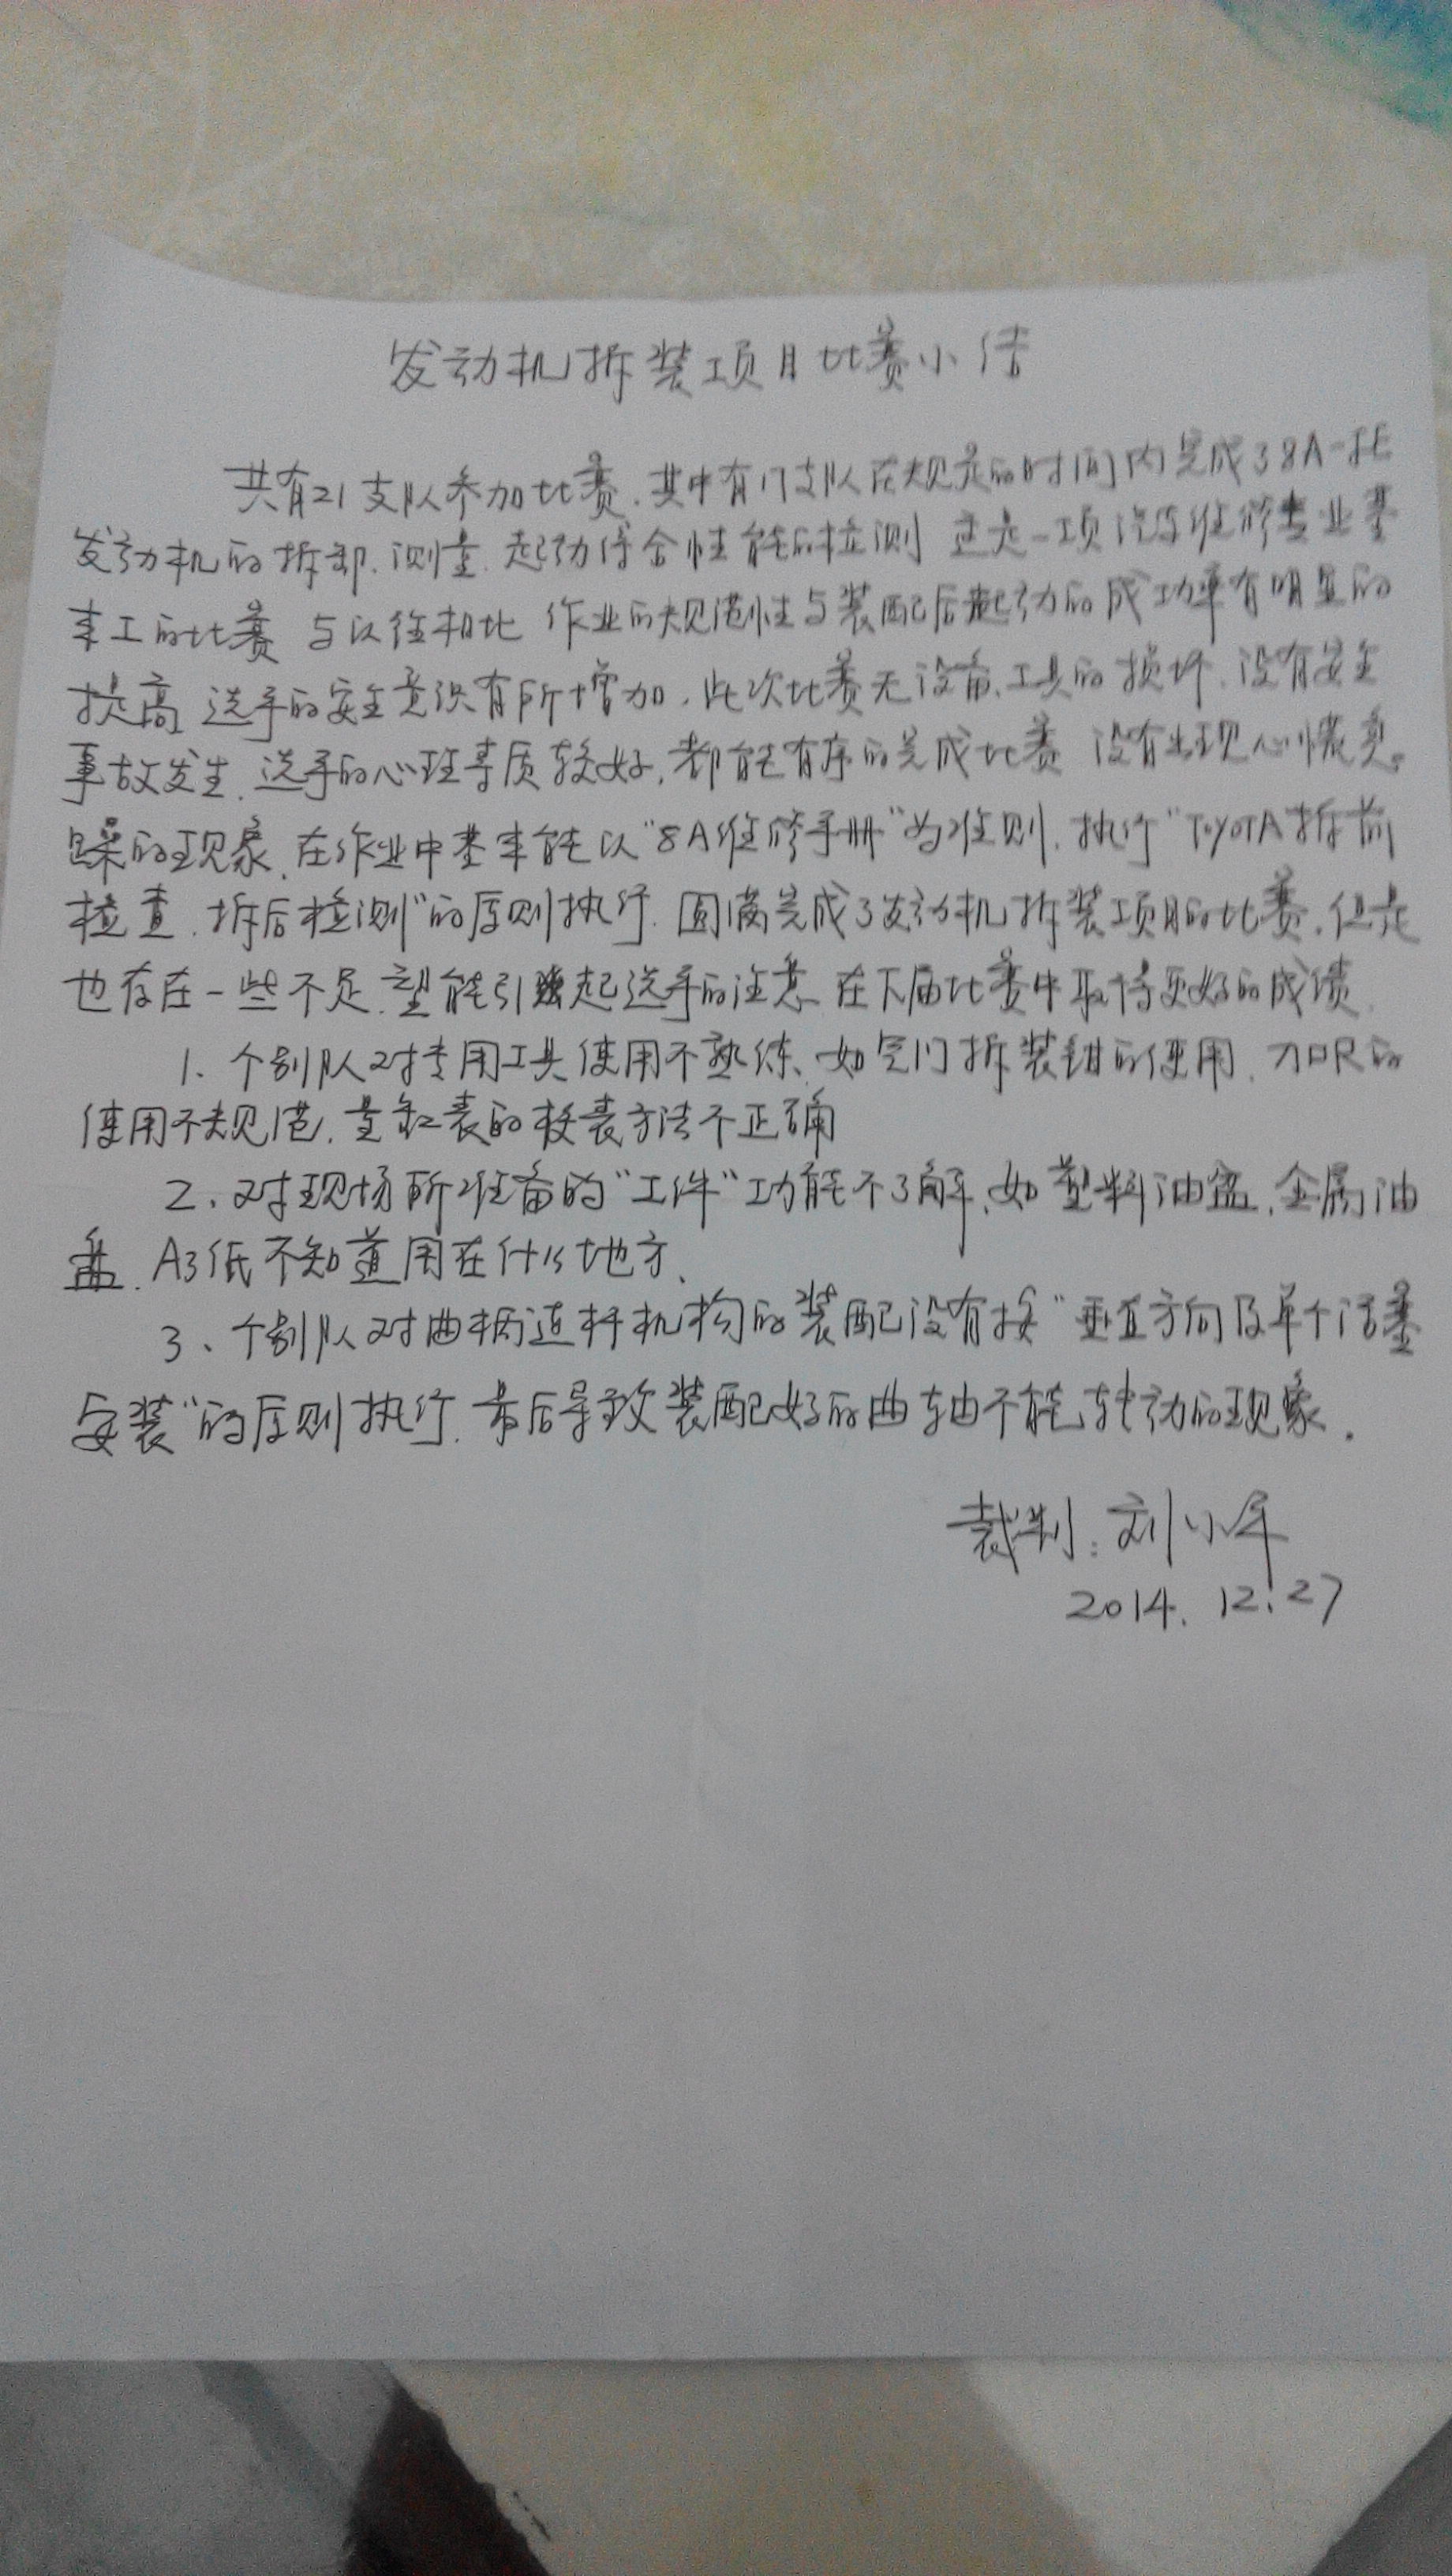 发动机拆装项目比赛小结
共有21支队参加比赛.其中有17支队在规定的时间内完成了8A-FE
发动机的拆卸.测量.起动综合性能的检测 这是一项汽车维修专业基
本工的比赛 与以往相比 作业的规范性与装配后起动的成功率有明显的
提高 选手的安全意识有所增加.此次比赛无设备、工具的损坏.没有安全
事故发生.选手的心理素质较好,都能有序的完成比赛 没有出现心慌
的现象.在作业中基本能以"8A维修手册"为准则.执行"TOYOTA拆前
检查.拆后检测"的原则执行.圆满完成了发动机拆装项目的比赛.但是
也存在一些不足.望能引起选手的注意 在下届比赛中取得更好的成绩.
1、个别队对专用工具使用不熟练、如气门拆装钳的使用、的
使用不规范.量缸表的校表方法不正确
2、对现场所准备的"工件"功能不了解、如塑料油盆、金属油
盆.A3纸不知道用在什么地方、
3、个别队对曲柄连杆机构的装配没有按"垂直方向及单个活塞
安装"的原则执行.最后导致装配好的曲轴不能转动的现象.
裁判:刘小军
2014.12.27